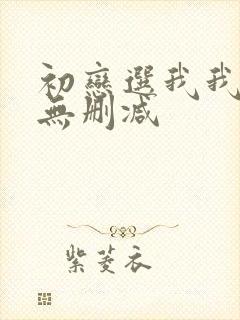 初戀選我我
無删减
紫菱衣